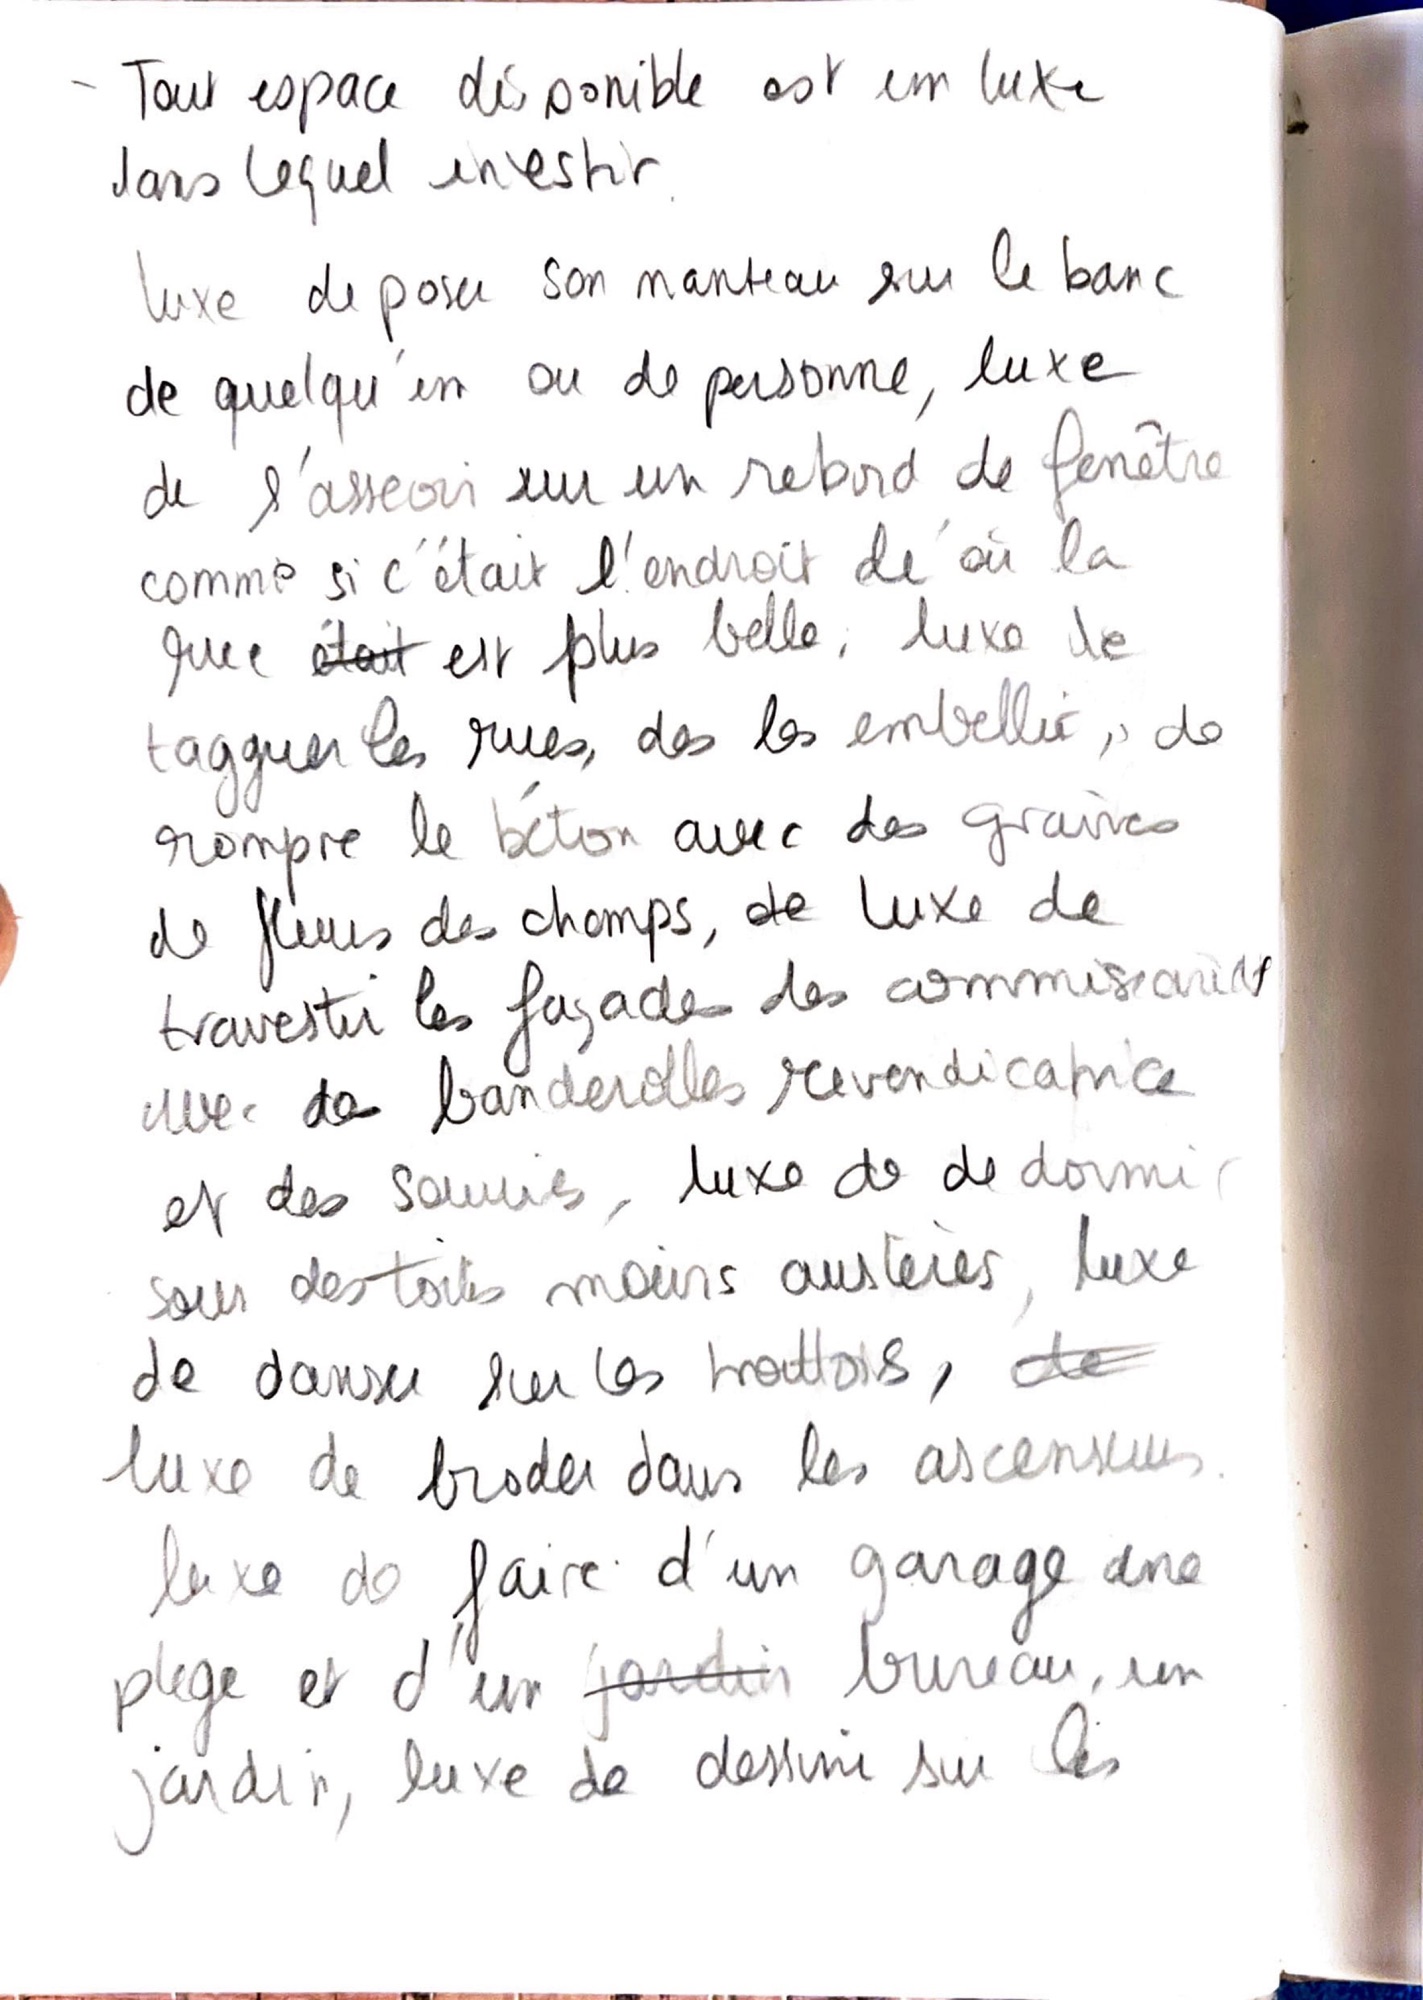 - Tout espace disponible est un luxe
dans lequel investir.
luxe de poser son manteau sur le banc
de quelqu'un ou de personne, luxe
de s'asseoir sur un rebord de fenêtre
comme si c'était l'endroit de où la
était est plus belle, luxe de
tagguer les rues, des les embellir, de
rompre le béton avec des graines
de fleurs des champs, de luxe de
travestir les façades des commissariats
avec de banderolles revendicatrice
et des souris, luxe de de dormir
sous des toits moins austères, luxe
de danser sur les trottoirs, de
luxe de broder dans les ascenseurs.
luxe de faire d'un garage une
plage et d'un jardin bureau, un
jardin, luxe de dessiner sur les